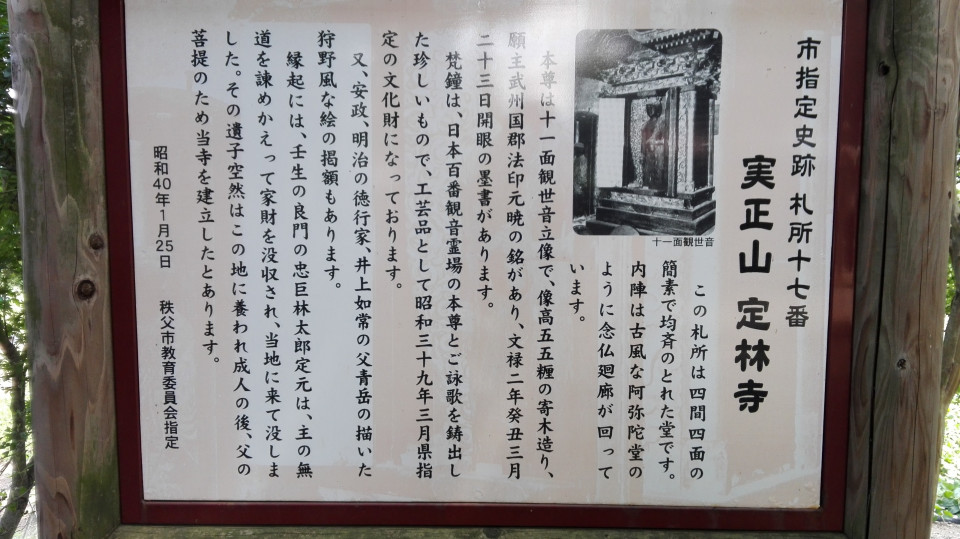 市指定史跡 札所十七番
実正山 定林寺
十一面観世音
この札所は四間四面の
簡素で均斉のとれた堂です。
内陣は古風な阿弥陀堂の
ように念仏廻廊が回って
います。
本尊は十一面観世音立像で、像高五五糎の寄木造り、
願主武州国郡法印元暁の銘があり、文禄二年癸丑三月
二十三日開眼の墨書があります。
梵鐘は、日本百番観音霊場の本尊とご詠歌を鋳出し
た珍しいもので、工芸品として昭和三十九年三月県指
定の文化財になっております。
又、安政、明治の徳行家、井上如常の父青岳の描いた
狩野風な絵の掲額もあります。
縁起には、壬生の良門の忠臣林太郎定元は、主の無
道を諫めかえって家財を没収され、当地に来て没しま
した。その遺子空然はこの地に養われ成人の後、父の
菩提のため当寺を建立したとあります。
昭和40年1月25日 秩父市教育委員会指定